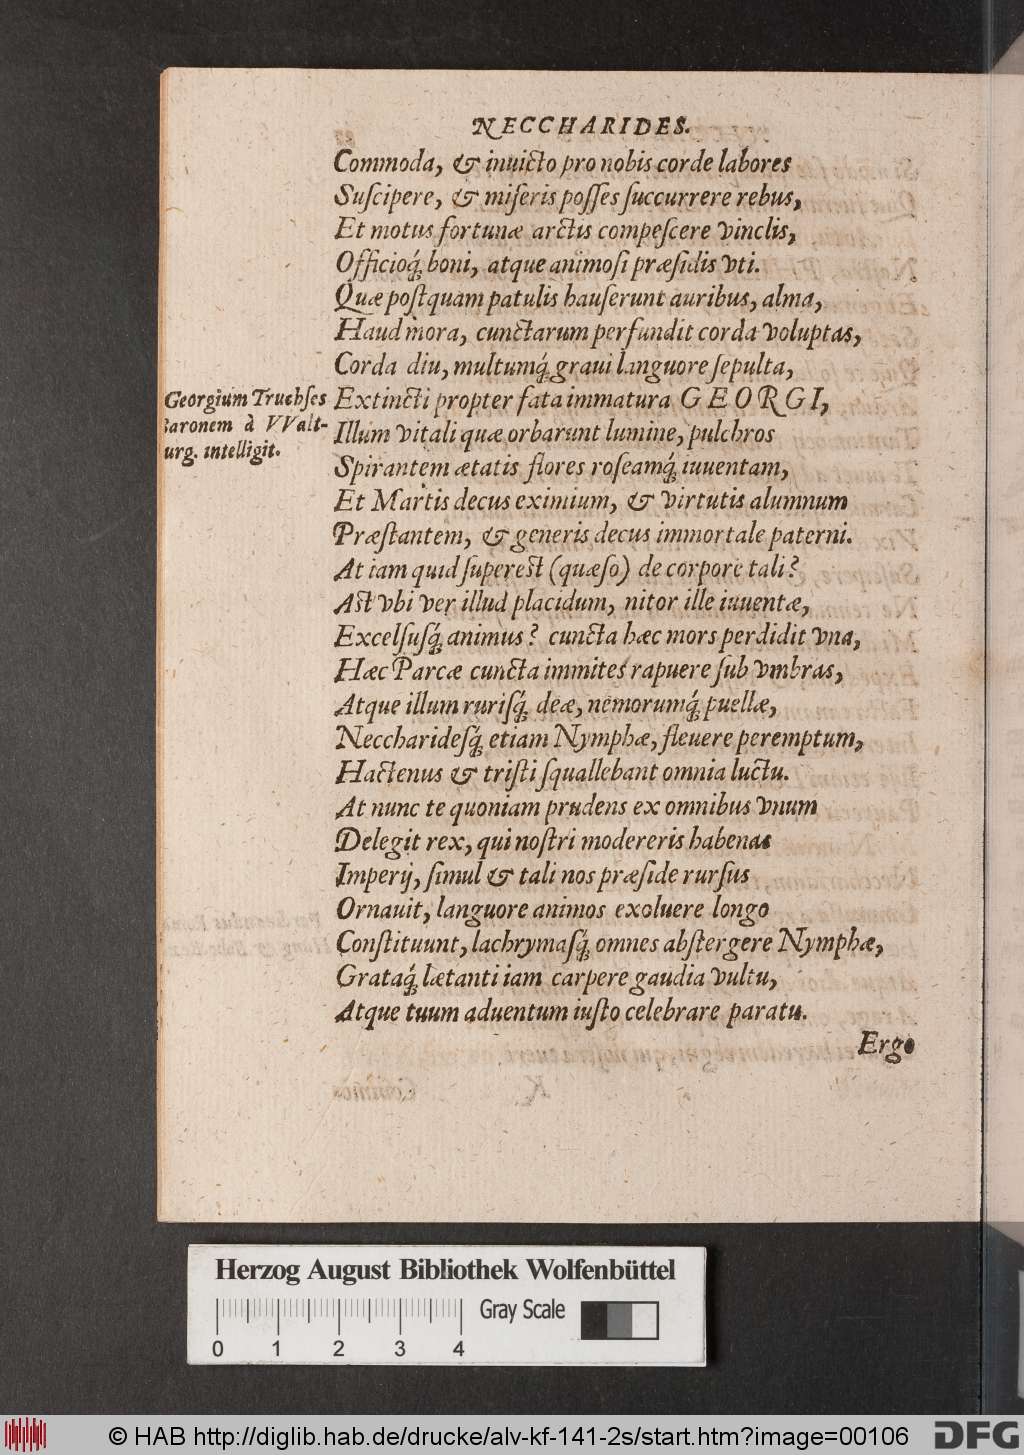 NECCHARIDES.
Commoda, & inuicto pro nobis corde labores
Suſcipere, & miſeris poſſes ſuccurrere rebus,
Et motus fortunæ arctis compeſcere vinclis,
Officioq́; boni, atque animoſi præſidis vti.
Quæ poſtquam patulis hauſerunt auribus, alma,
Haud mora, cunctarum perfundit corda voluptas,
Corda diu, multumq́; graui languore ſepulta,
Extincti propter fata immatura GEORGI,
Georgium Truchſes
Baronem à VValt-
urg. intelligit.
Illum vitali quæ orbarunt lumine, pulchros
Spirantem ætatis flores roſeamq́; iuuentam,
Et Martis decus eximium, & virtutis alumnum
Præſtantem, & generis decus immortale paterni.
At iam quid ſupereſt (quæſo) de corpore tali?
Aſt vbi ver illud placidum, nitor ille iuuentæ,
Excelſuſq́; animus? cuncta hæc mors perdidit vna,
Hæc Parcæ cuncta immites rapuere ſub vmbras,
Atque illum ruriſq́; deæ, nemorumq́; puellæ,
Neccharideſq́; etiam Nymphæ, fleuere peremptum,
Hactenus & triſti ſquallebant omnia luctu.
At nunc te quoniam prudens ex omnibus vnum
Delegit rex, qui noſtri modereris habenas
Imperij, ſimul & tali nos præſide rurſus
Ornauit, languore animos exoluere longo
Conſtituunt, lachrymaſq́; omnes abſtergere Nymphæ,
Grataq́; lætanti iam carpere gaudia vultu,
Atque tuum aduentum iuſto celebrare paratu.
Ergo
Herzog August Bibliothek Wolfenbüttel
Gray Scale
0 1 2 3 4
© HAB http://diglib.hab.de/drucke/alv-kf-141-2s/start.htm?image=00106
DFG